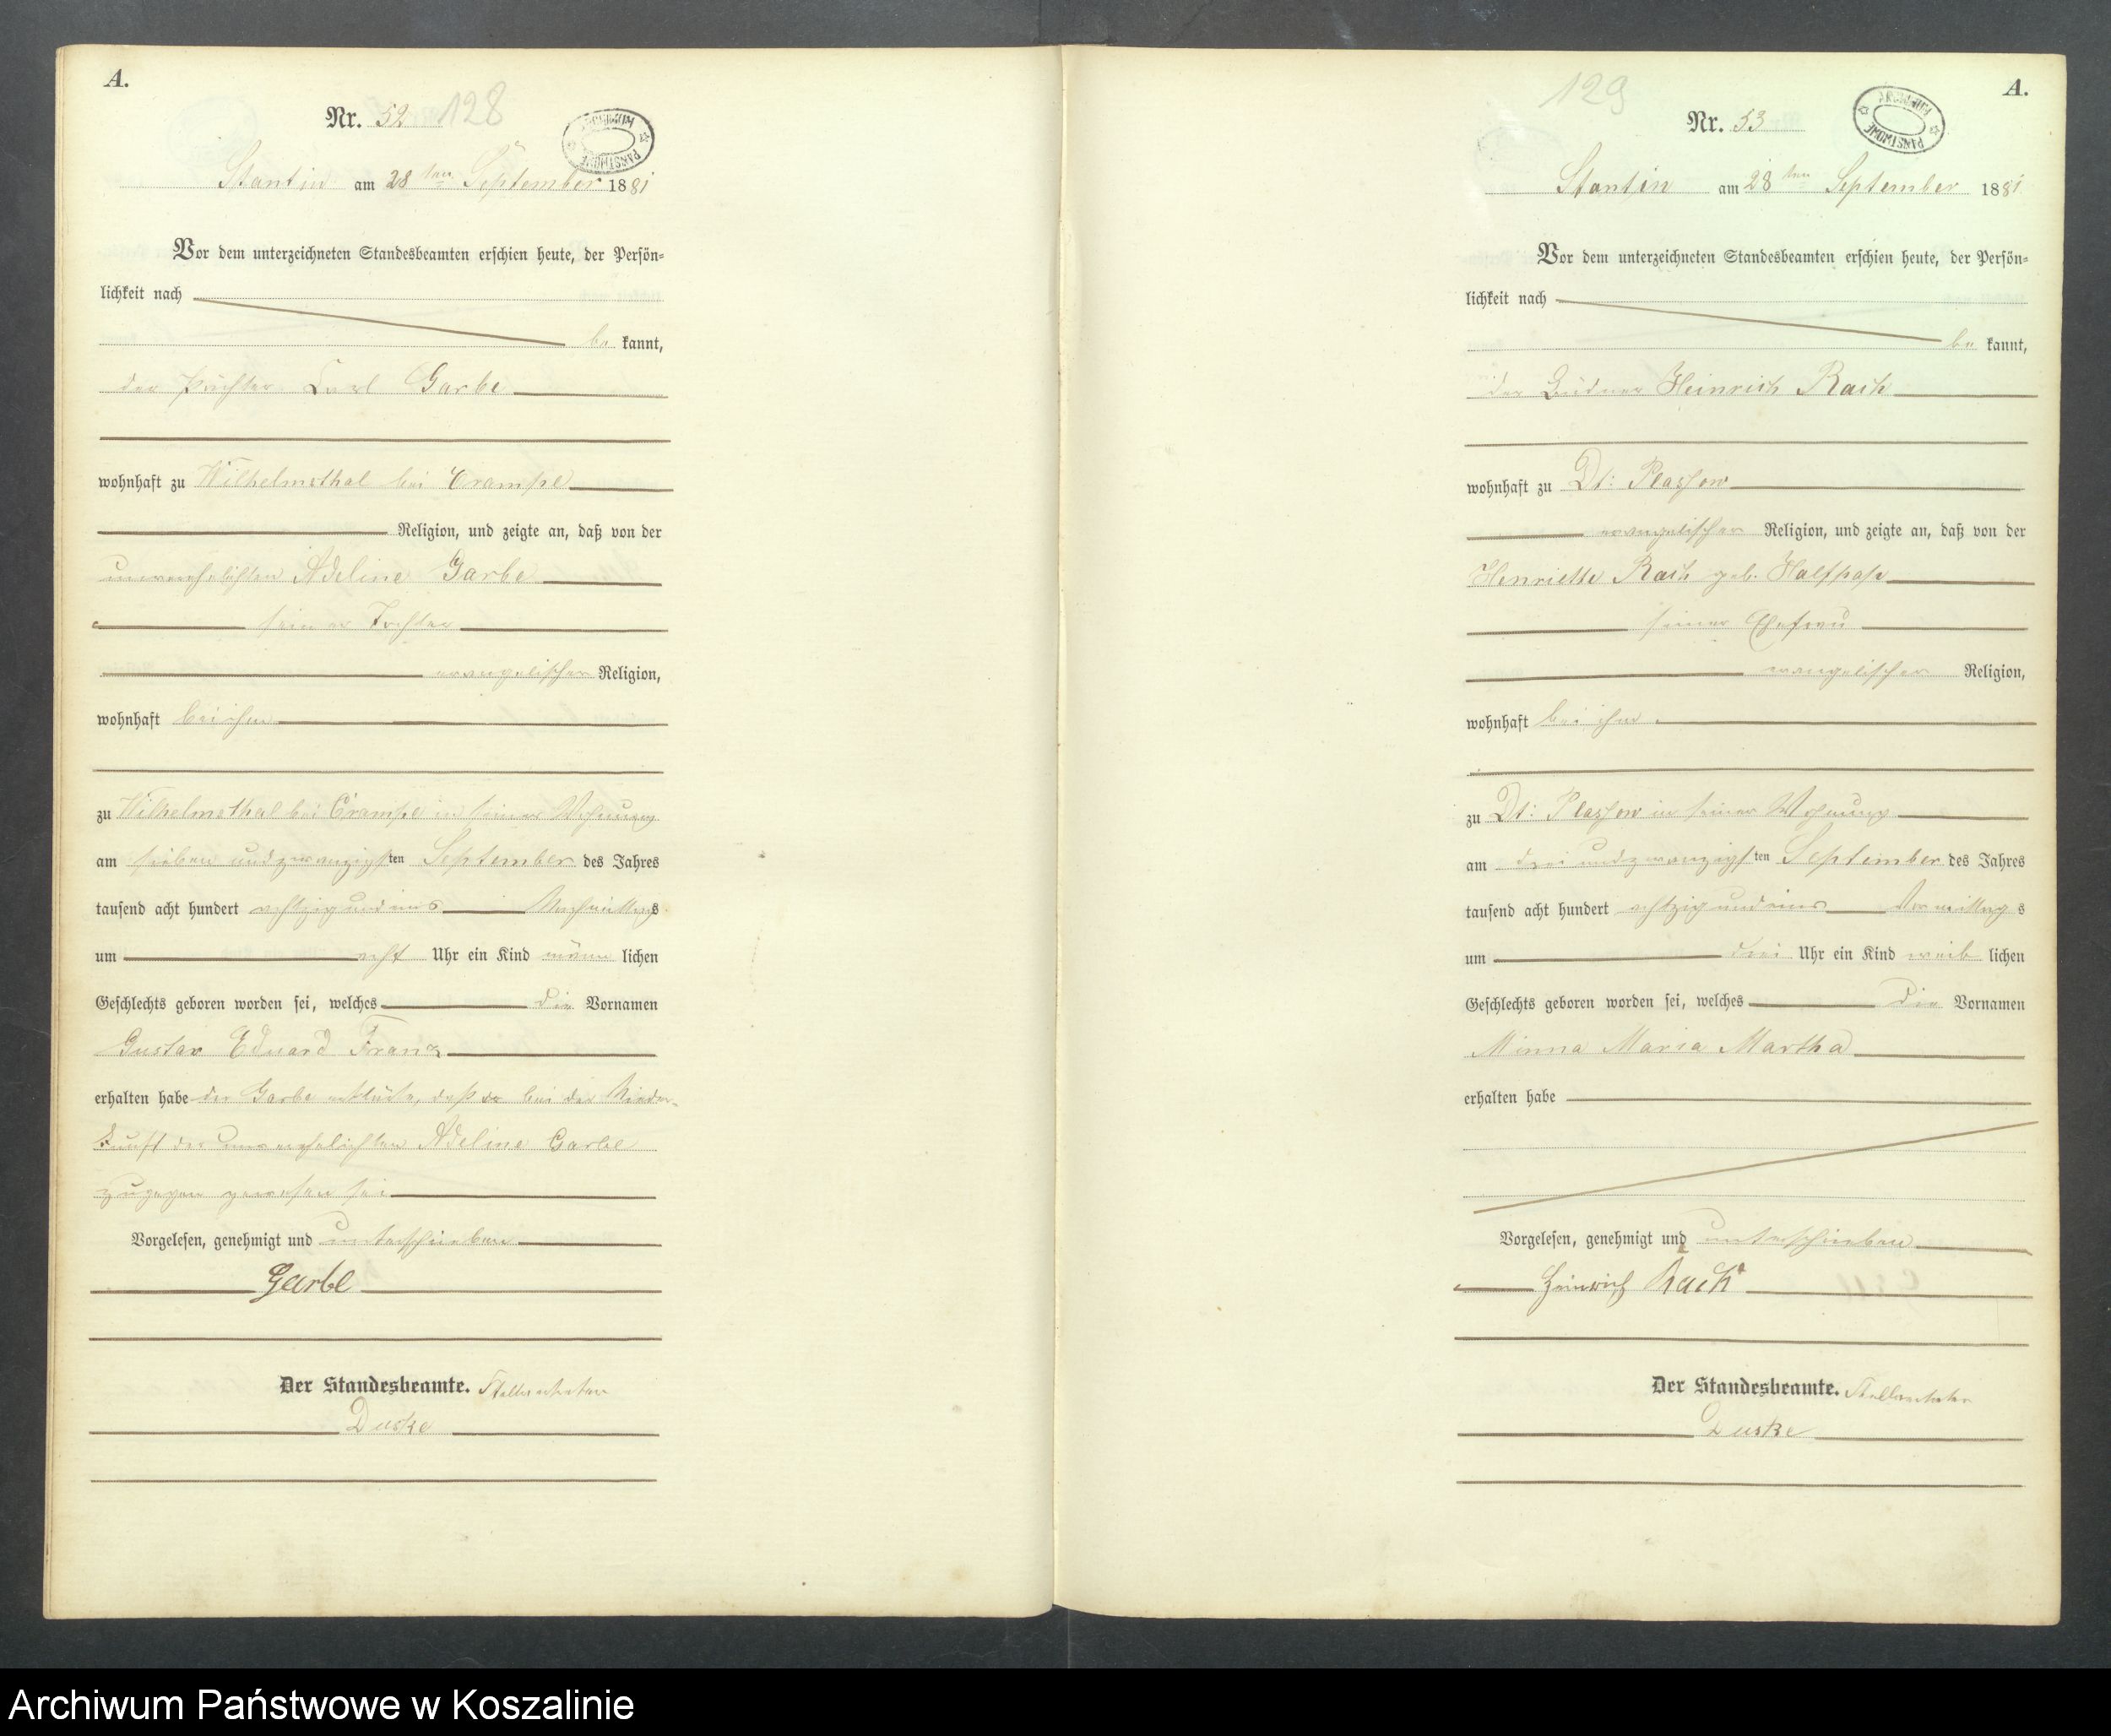 A.
Nr. 52 128
PAŃSTWOWE ARCHIWUM
Stantin am 28ten September 1881
Vor dem unterzeichneten Standesbeamten erschien heute, der Persön-
lichkeit nach
be kannt,
der Pächter Carl Garbe
wohnhaft zu Wilhelmsthal bei Crampe
Religion, und zeigte an, daß von der
unverehelichten Adeline Garbe
seiner Tochter
evangelischer Religion,
wohnhaft bei ihm
zu Wilhelmsthal bei Crampe in seiner Wohnung
am sieben und zwanzigsten September des Jahres
tausend acht hundert achtzig und eins Nachmittags
um acht Uhr ein Kind männ lichen
Geschlechts geboren worden sei, welches die Vornamen
Gustav Eduard Franz
erhalten habe der Garbe erklärte, daß er bei der Nieder-
kunft der unverehelichten Adeline Garbe
zugegen gewesen sei
Vorgelesen, genehmigt und unterschrieben
Garbe
Der Standesbeamte. Stellvertreter
Duske
129
A.
Nr. 53
PAŃSTWOWE ARCHIWUM
Stantin am 28ten September 1881
Vor dem unterzeichneten Standesbeamten erschien heute, der Persön-
lichkeit nach
be kannt,
der Büdner Heinrich Rach
wohnhaft zu Dt: Plassow
evangelischer Religion, und zeigte an, daß von der
Henriette Rach geb. Halfpap
seiner Ehefrau
evangelischer Religion,
wohnhaft bei ihm
zu Dt: Plassow in seiner Wohnung
am drei und zwanzigsten September des Jahres
tausend acht hundert achtzig und eins Vormittags
um drei Uhr ein Kind weib lichen
Geschlechts geboren worden sei, welches die Vornamen
Minna Maria Martha
erhalten habe
Vorgelesen, genehmigt und unterschrieben
Heinrich Rach
Der Standesbeamte. Stellvertreter
Duske
Archiwum Państwowe w Koszalinie